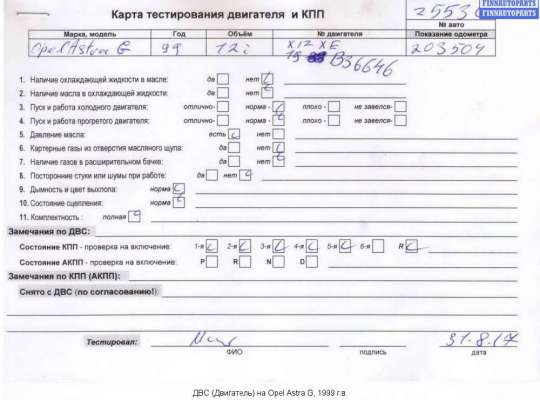 FINNAUTOPARTS
FINNAUTOPARTS
Карта тестирования двигателя и КПП
2553
№ авто
Марка, модель Год Объём № двигателя Показание одометра
Opel Astra G 99 1,2 i X12 XE 203504
19 B36646
1. Наличие охлаждающей жидкости в масле: да нет
2. Наличие масла в охлаждающей жидкости: да нет
3. Пуск и работа холодного двигателя: отлично- норма - плохо - не завелся-
4. Пуск и работа прогретого двигателя: отлично- норма - плохо - не завелся-
5. Давление масла: есть нет
6. Картерные газы из отверстия масляного щупа: да нет
7. Наличие газов в расширительном бачке: да нет
8. Посторонние стуки или шумы при работе: да нет
9. Дымность и цвет выхлопа: норма
10. Состояние сцепления: норма
11. Комплектность : полная
Замечания по ДВС:
Состояние КПП - проверка на включение: 1-я 2-я 3-я 4-я 5-я 6-я R
Состояние АКПП - проверка на включение: P R N D
Замечания по КПП (АКПП):
Снято с ДВС (по согласованию!):
Тестировал: 31.8.17
ФИО подпись дата
ДВС (Двигатель) на Opel Astra G, 1999 г.в.